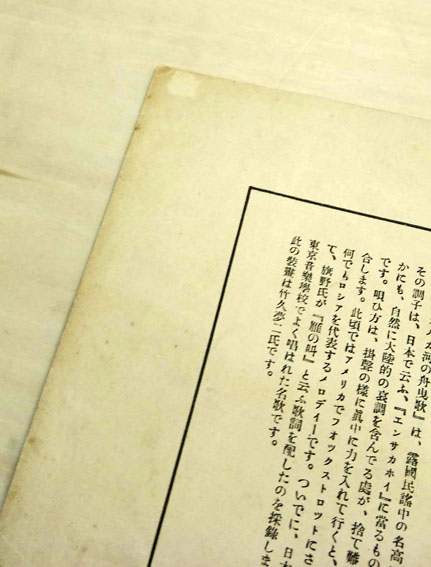 ガ河の舟曳歌』は、露國民謠中の名高
その調子は、日本で云ふ、『エンサカホイ』に當るもの
かにも、自然に大陸的の哀調を含んでる處が、捨て難
です。唄ひ方は、掛聲の樣に眞中に力を入れて行くと、
合します。此頃ではアメリカでフオツクストロツトにさ
何でもロシアを代表するメロデイーです。ついでに、日本
て、旗野氏が『雁の叫』と云ふ歌詞を配したのを採錄しま
東京音樂學校でよく唱はれた名歌です。
此の裝畫は竹久夢二氏です。